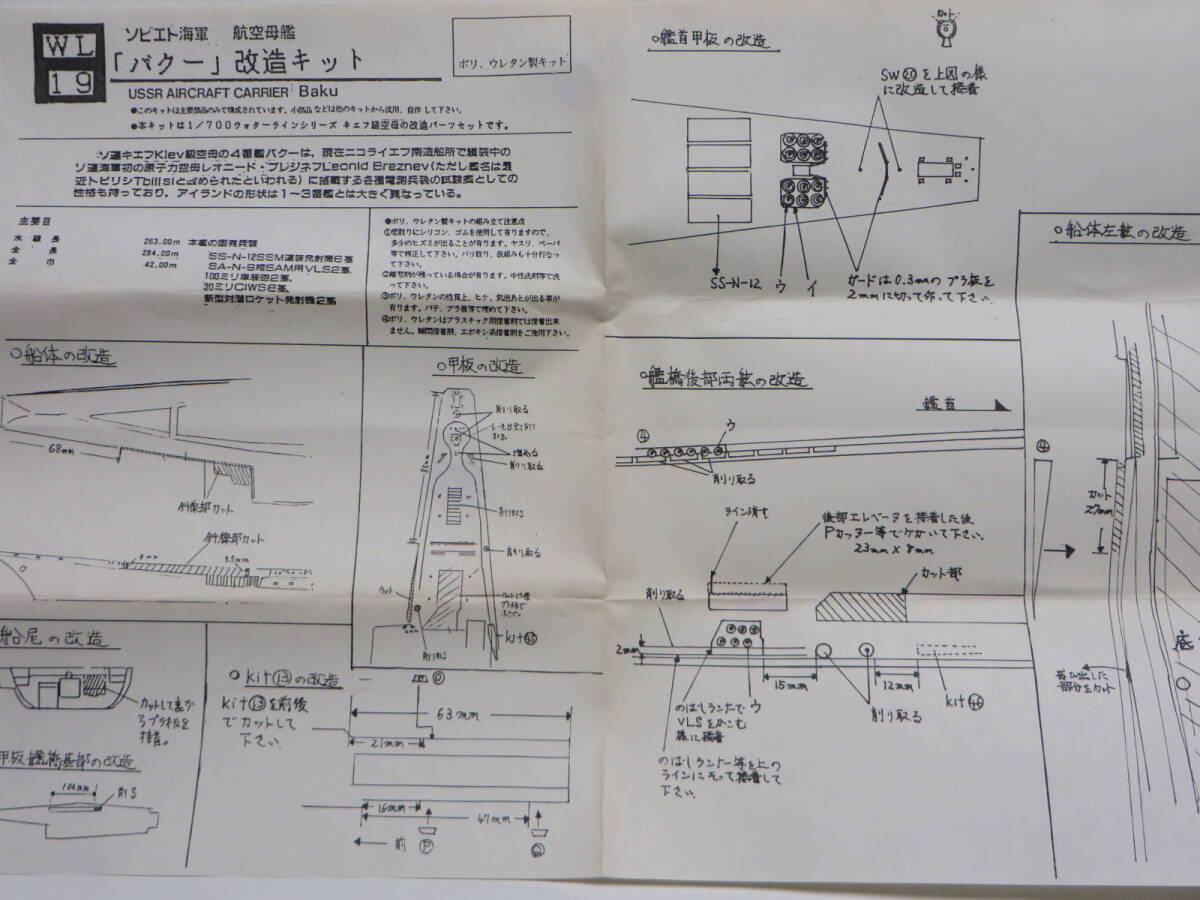 WL
19
ソビエト海軍 航空母艦
「バクー」改造キット
USSR AIRCRAFT CARRIER Baku
ポリ、ウレタン製キット
●このキットは主要部品のみで構成されています。小部品などは他のキットから流用、自作して下さい。
●本キットは1/700ウォターラインシリーズ キエフ級空母の改造パーツセットです。
ソ連キエフKiev級空母の4番艦バクーは、現在ニコライエフ南造船所で艤装中の
ソ連海軍初の原子力空母レオニード・ブレジネフLeonid Breznev(ただし艦名は最
近トビリシTbilisiと改められたといわれる)に搭載する各種電測兵装の試験艦としての
性格も持っており、アイランドの形状は1~3番艦とは大きく異なっている。
主要目
水線長 263.00m
全長 284.00m
全巾 42.00m
本艦の固有兵装
SS-N-12SSM連装発射筒6基
SA-N-9短SAM用VLS2基、
100ミリ単装砲2基、
30ミリCIWS8基、
新型対潜ロケット発射機2基
●ポリ、ウレタン製キットの組み立て注意点
①型取りにシリコン、ゴムを使用して有りますので、
多少のヒズミが出ることが有ります。ヤスリ、ペーパ
等で修正して下さい。バリ取り、仮組みも十分行なっ
て下さい。
②離型剤が残っている場合が有ります。中性洗剤等で洗
って下さい。
③ポリ、ウレタンの性質上、ヒケ、気泡あとが出る事が
有ります。パテ、プラ板等で埋めて下さい。
④ポリ、ウレタンはプラスチック用接着剤では接着出来
ません。瞬間接着剤、エポキシ系接着剤をご使用下さい。
○艦首甲板の改造
カット
SW⑳を上図の様
に改造して接着
SS-N-12
ウ
イ
ガードは0.3mmのプラ板を
2mmに切って作って下さい
○船体左舷の改造
④
カット
27mm
底
○船体の改造
68mm
斜線部カット
斜線部カット
○甲板の改造
削り取る
削り取る
削り取る
削り取る
カット
削り取る
kit
○艦橋後部両舷の改造
艦首
④
ウ
削り取る
ライン消す
後部エレベータを接着した後
Pカッター等でケガいて下さい。
23mm×8mm
カット部
削り取る
2mm
15mm
12mm
kit㊻
削り取る
のばしランナでウ
VLSをかこむ
様に接着
のばしランナー等を上の
ラインにそって接着して
下さい
部分をカット
船尾の改造
カットして裏か
らプラ板を
接着。
甲板艦橋基部の改造
106mm
削る
○kit⑬の改造
kit⑬を前後
でカットして
下さい
63mm
21mm
16mm
47mm
前
Ⓟ